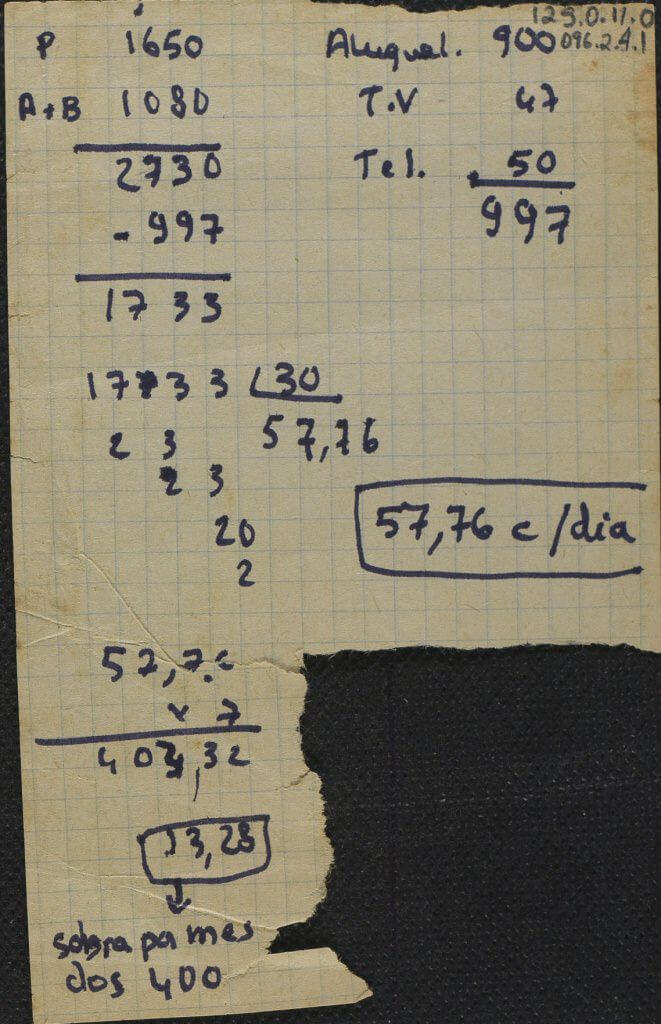 129.0.11.0
096.2.4.1
P 1650
A+B 1080
2730
- 997
1733
Aluguel. 900
T.V 47
Tel. 50
997
1733 30
2 3 57,76
2 3
20
2
57,76 c/dia
57,76
x 7
404,32
13,28
sobra por mes
dos 400